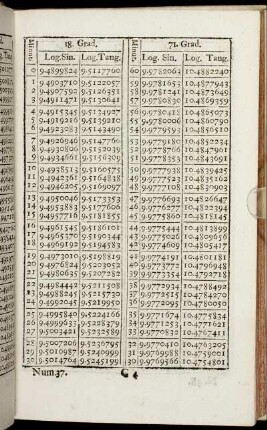 Minut. 18. Grad. Minut. 71. Grad.
Log.Sin. Log.Tang. Log. Sin. Log. Tang.
0 9.4899824 9.5117760 60 9.9782063 10.4882240
1 9.4903710 9.5122057 59 9.9781653 10.4877943
2 9.4907592 9.5126351 58 9.9781241 10.4873649
3 9.4911471 9.5130641 57 9.9780830 10.4869359
4 9.4915345 9.5134927 56 9.9780418 10.4865073
5 9.4919216 9.5139210 55 9.9780006 10.4860790
6 9.4923083 9.5143490 54 9.9779593 10.4856510
7 9.4926946 9.5147766 53 9.9779180 10.4852234
8 9.4930806 9.5152039 52 9.9778766 10.4847961
9 9.4934661 9.5156309 51 9.9778353 10.4843691
10 9.4938513 9.5160575 50 9.9777938 10.4839425
11 9.4942361 9.5164838 49 9.9777523 10.4835162
12 9.4946205 9.5169097 48 9.9777108 10.4830903
13 9.4950046 9.5173353 47 9.9776693 10.4826647
14 9.4953883 9.5177606 46 9.9776277 10.4822394
15 9.4957716 9.5181855 45 9.9775860 10.4818145
16 9.4961545 9.5186101 44 9.9775444 10.4813899
17 9.4965370 9.5190344 43 9.9775026 10.4809656
18 9.4969192 9.5194583 42 9.9774609 10.4805417
19 9.4973010 9.5198819 41 9.9774191 10.4801181
20 9.4976824 9.5203052 40 9.9773772 10.4796948
21 9.4980635 9.5207282 39 9.9773354 10.4792718
22 9.4984442 9.5211508 38 9.9772934 10.4788492
23 9.4988245 9.5215730 37 9.9772515 10.4784270
24 9.4992045 9.5219950 36 9.9772095 10.4780050
25 9.4995840 9.5224166 35 9.9771674 10.4775834
26 9.4999633 9.5228379 34 9.9771253 10.4771621
27 9.5003421 9.5232589 33 9.9770832 10.4767411
28 9.5007206 9.5236795 32 9.9770410 10.4763205
29 9.5010987 9.5240999 31 9.9769988 10.4759001
30 9.5014764 9.5245199 30 9.9769566 10.4754801
Num.37. G 4